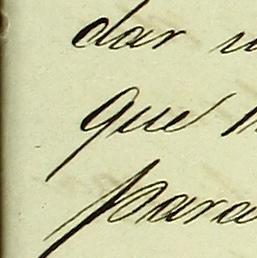 dar
que
para